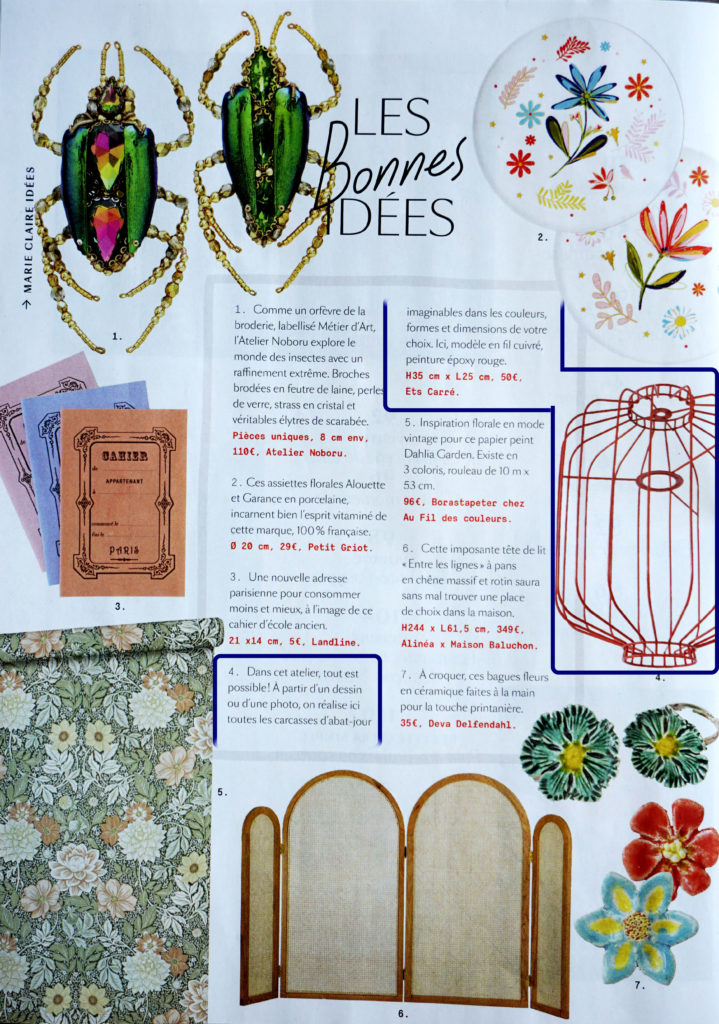 → MARIE CLAIRE IDÉES
LES
Bonnes
IDÉES
1.
2.
1. Comme un orfèvre de la
broderie, labellisé Métier d'Art,
l'Atelier Noboru explore le
monde des insectes avec un
raffinement extrême. Broches
brodées en feutre de laine, perles
de verre, strass en cristal et
véritables élytres de scarabée.
Pièces uniques, 8 cm env,
110€, Atelier Noboru.
2. Ces assiettes florales Alouette
et Garance en porcelaine,
incarnent bien l'esprit vitaminé de
cette marque, 100% française.
Ø 20 cm, 29€, Petit Griot.
3. Une nouvelle adresse
parisienne pour consommer
moins et mieux, à l'image de ce
cahier d'école ancien.
21 x14 cm, 5€, Landline.
4. Dans cet atelier, tout est
possible! À partir d'un dessin
ou d'une photo, on réalise ici
toutes les carcasses d'abat-jour
imaginables dans les couleurs,
formes et dimensions de votre
choix. Ici, modèle en fil cuivré,
peinture époxy rouge.
H35 cm x L25 cm, 50€,
Ets Carré.
5. Inspiration florale en mode
vintage pour ce papier peint
Dahlia Garden. Existe en
3 coloris, rouleau de 10 m x
53 cm.
96€, Borastapeter chez
Au Fil des couleurs.
6. Cette imposante tête de lit
« Entre les lignes » à pans
en chêne massif et rotin saura
sans mal trouver une place
de choix dans la maison.
H244 x L61,5 cm, 349€,
Alinéa x Maison Baluchon.
7. À croquer, ces bagues fleurs
en céramique faites à la main
pour la touche printanière.
35€, Deva Delfendahl.
CAHIER
de
APPARTENANT
à
commencé le
fini le
PARIS
3.
4.
5.
6.
7.